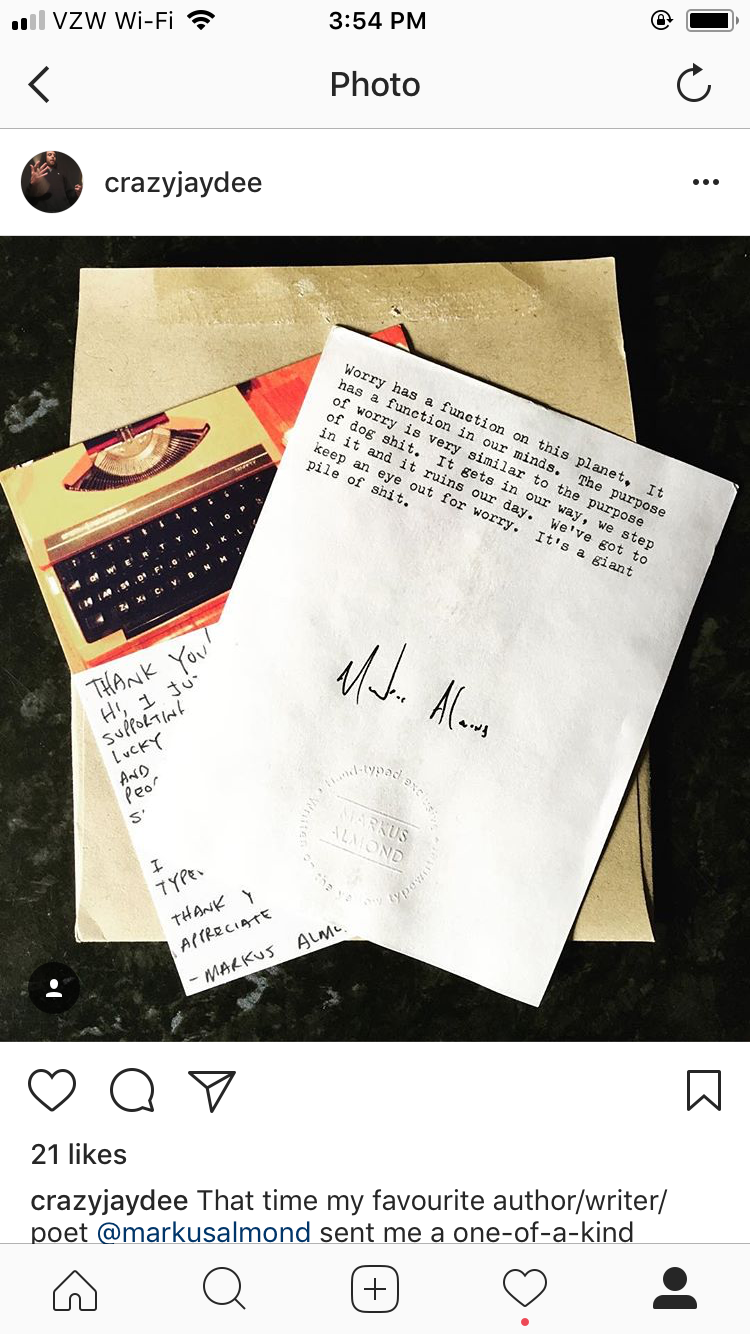 VZW Wi-Fi
3:54 PM
Photo
crazyjaydee
Worry has a function on this planet. It
has a function in our minds. The purpose
of worry is very similar to the purpose
of dog shit. It gets in our way, we step
in it and it ruins our day. We've got to
keep an eye out for worry. It's a giant
pile of shit.
THANK YOU!
HI, I JU
SUPPORTING
LUCKY
AND
PEOP
S
I
TYPE
THANK Y
APPRECIATE
- MARKUS ALMO
Markus Almond
MARKUS
ALMOND
21 likes
crazyjaydee That time my favourite author/writer/
poet @markusalmond sent me a one-of-a-kind